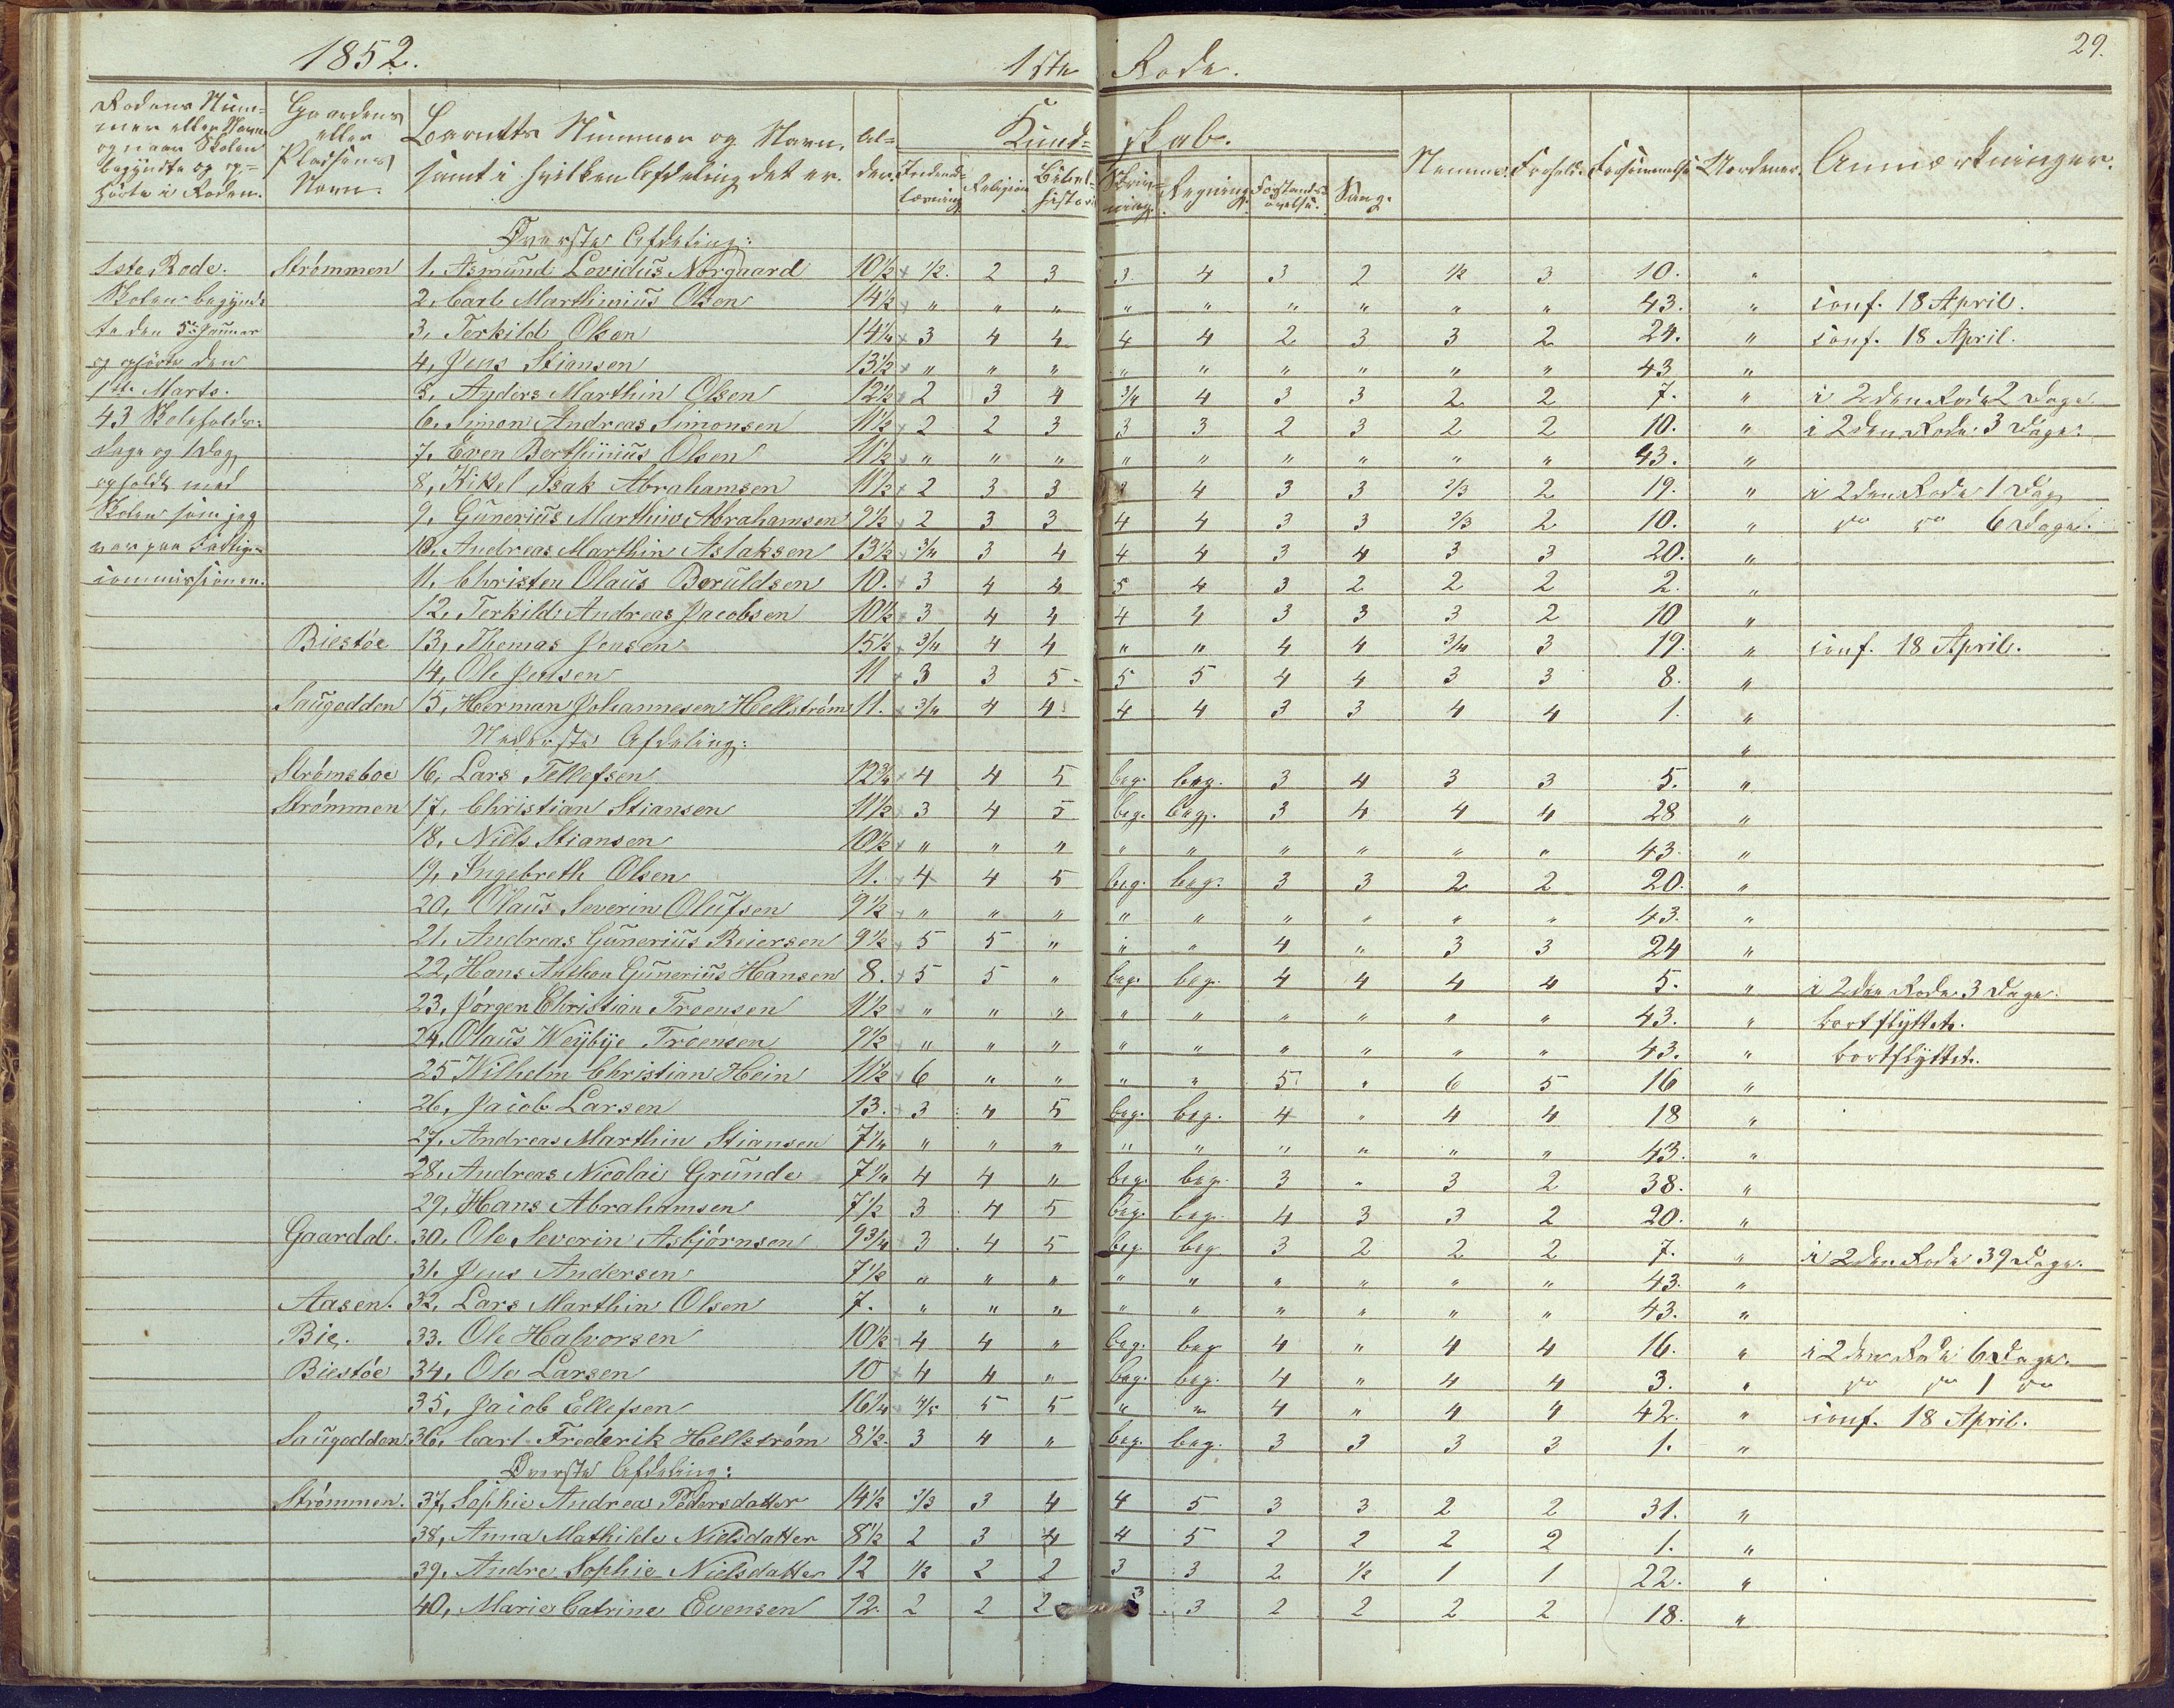 1852. 1ste Rode. 29.
Rodens Num= Gaardens
mer eller Navn eller Barnets Nummer og Navn, Al= Kund= skab.
og naar Skolen Pladsens samt i hvilken Afdeling det er. der. Indenad- Religion Bibel- Skriv- Regning. Forstands- Sang. Nemme. Forhold. Forsømmelse Anmærkninger.
begyndte og op= Navn. læsning historie ning. øvelse.
hørte i Roden.
Øverste Afdeling:
1ste Rode. Strømmen 1, Asmund Levidus Norgaard 10½ ½. 2 3 3 4 3 2 ½ 3 10. "
Skolen begynd= 2, Carl Marthinius Olsen 14½ " " " " " " " " " 43. " conf. 18 April.
te den 5te Januar 3, Terkild Olsen 14¼ 3 4 4 4 4 2 3 3 2 24. " conf. 18 April.
og ophørte den 4, Jens Stiansen 13½ " " " " " " " " " 43 "
1ste Marts. 5, Anders Marthin Olsen 12½ 2 3 4 3/4 4 3 3 2 2 7. " i 2den Rode 2 Dage
43 Skoleholds= 6, Simon Andreas Simonsen 11½ 2 2 3 3 3 2 3 2 2 10. " i 2den Rode 3 Dage.
dage og 1 Dag 7, Even Berthinius Olsen 11½ " " " " " " " " " 43. "
opholdt med 8, Kittel Isak Abrahamsen 11½ 2 3 3 4 3 3 2/3 2 19. " i 2den Rode 1 Dag
Skolen som jeg 9, Gunerius Marthin Abrahamsen 9½ 2 3 3 4 4 3 3 2/3 2 10. " do do 6 Dage.
var paa Fattig= 10, Andreas Marthin Aslaksen 13½ 3/4 3 4 4 4 3 4 3 3 20. "
commissionen. 11, Christen Olaus Beruldsen 10. 3 4 4 5 4 3 2 2 2 2. "
12, Terkild Andreas Jacobsen 10½ 3 4 4 4 4 3 3 3 2 10 "
Biestøe 13, Thomas Jensen 15½ 3/4 4 4 " " 4 4 3/4 3 19. " conf. 18 April.
14, Ole Jensen 11 3 3 5 5 5 4 4 3 3 8. "
Saugodden 15, Herman Johannesen Hellstrøm 11. 3/4 4 4 4 4 3 3 4 4 1. "
Nederste Afdeling: "
Strømsboe 16, Lars Tellefsen 12¾ 4 4 5 beg. beg. 3 4 3 3 5. "
Strømmen 17, Christian Stiansen 11½ 3 4 5 beg. beg. 3 4 4 4 28 "
18, Niels Stiansen 10½ " " " " " " " " " 43. "
19, Ingebreth Olsen 11. 4 4 5 beg. beg. 3 3 2 2 20. "
20, Olaus Severin Olufsen 9½ " " " " " " " " " 43. "
21, Andreas Gunerius Reiersen 9½ 5 5 " " " 4 " 3 3 24 "
22, Hans Anthon Gunerius Hansen 8. 5 5 " beg. beg. 4 4 4 4 5. " i 2den Rode 3 Dage.
23, Jørgen Christian Troensen 11½ " " " " " " " " " 43. " bortflyttet.
24, Olaus Weybye Troensen 9½ " " " " " " " " " 43. " bortflyttet.
25 Wilhelm Christian Hein 11½ 6 " " " " 5 " 6 5 16 "
26, Jacob Larsen 13. 3 4 5 beg. beg. 4 " 4 4 18 "
27, Andreas Marthin Stiansen 7¼ " " " " " " " " " 43. "
28, Andreas Nicolai Grunde 7¼ 4 4 " beg. beg. 3 " 3 2 38. "
29, Hans Abrahamsen 7½ 3 4 5 beg. beg. 4 3 3 2 20. "
Gaardal. 30, Ole Severin Asbjørnsen 9¾ 3 4 5 beg. beg. 3 2 2 2 7. " i 2den Rode 39 Dage.
31, Jens Andersen 7½ " " " " " " " " " 43. "
Aasen. 32, Lars Marthin Olsen 7. " " " " " " " " " 43. "
Bie. 33. Ole Halvorsen 10½ 4 4 " beg. beg 4 " 4 4 16. " i 2den Rode 6 Dage.
Biestøe 34, Ole Larsen 10 4 4 " beg. beg. 4 " 4 4 3. " do do 1 do
35, Jacob Ellefsen 16¼ 4/5 5 5 " " 4 " 4 4 42. " conf. 18 April.
Saugodden 36, Carl Frederik Hellstrøm 8½. 3 4 " beg. beg. 3 3 3 3 1. "
Øverste Afdeling:
Strømmen. 37, Sophie Andrea Pedersdatter 14½ 2/3 3 4 4 5 3 3 2 2 31. "
38, Anna Mathilde Nielsdatter 8½ 2 3 4 4 5 2 2 2 2 1. "
39, Andre. Sophie Nielsdatter 12 ½ 2 2 3 3 2 ½ 1 1 22. "
40, Marie Catrine Evensen 12. 2 2 2 3 3 2 2 2 2 18. "